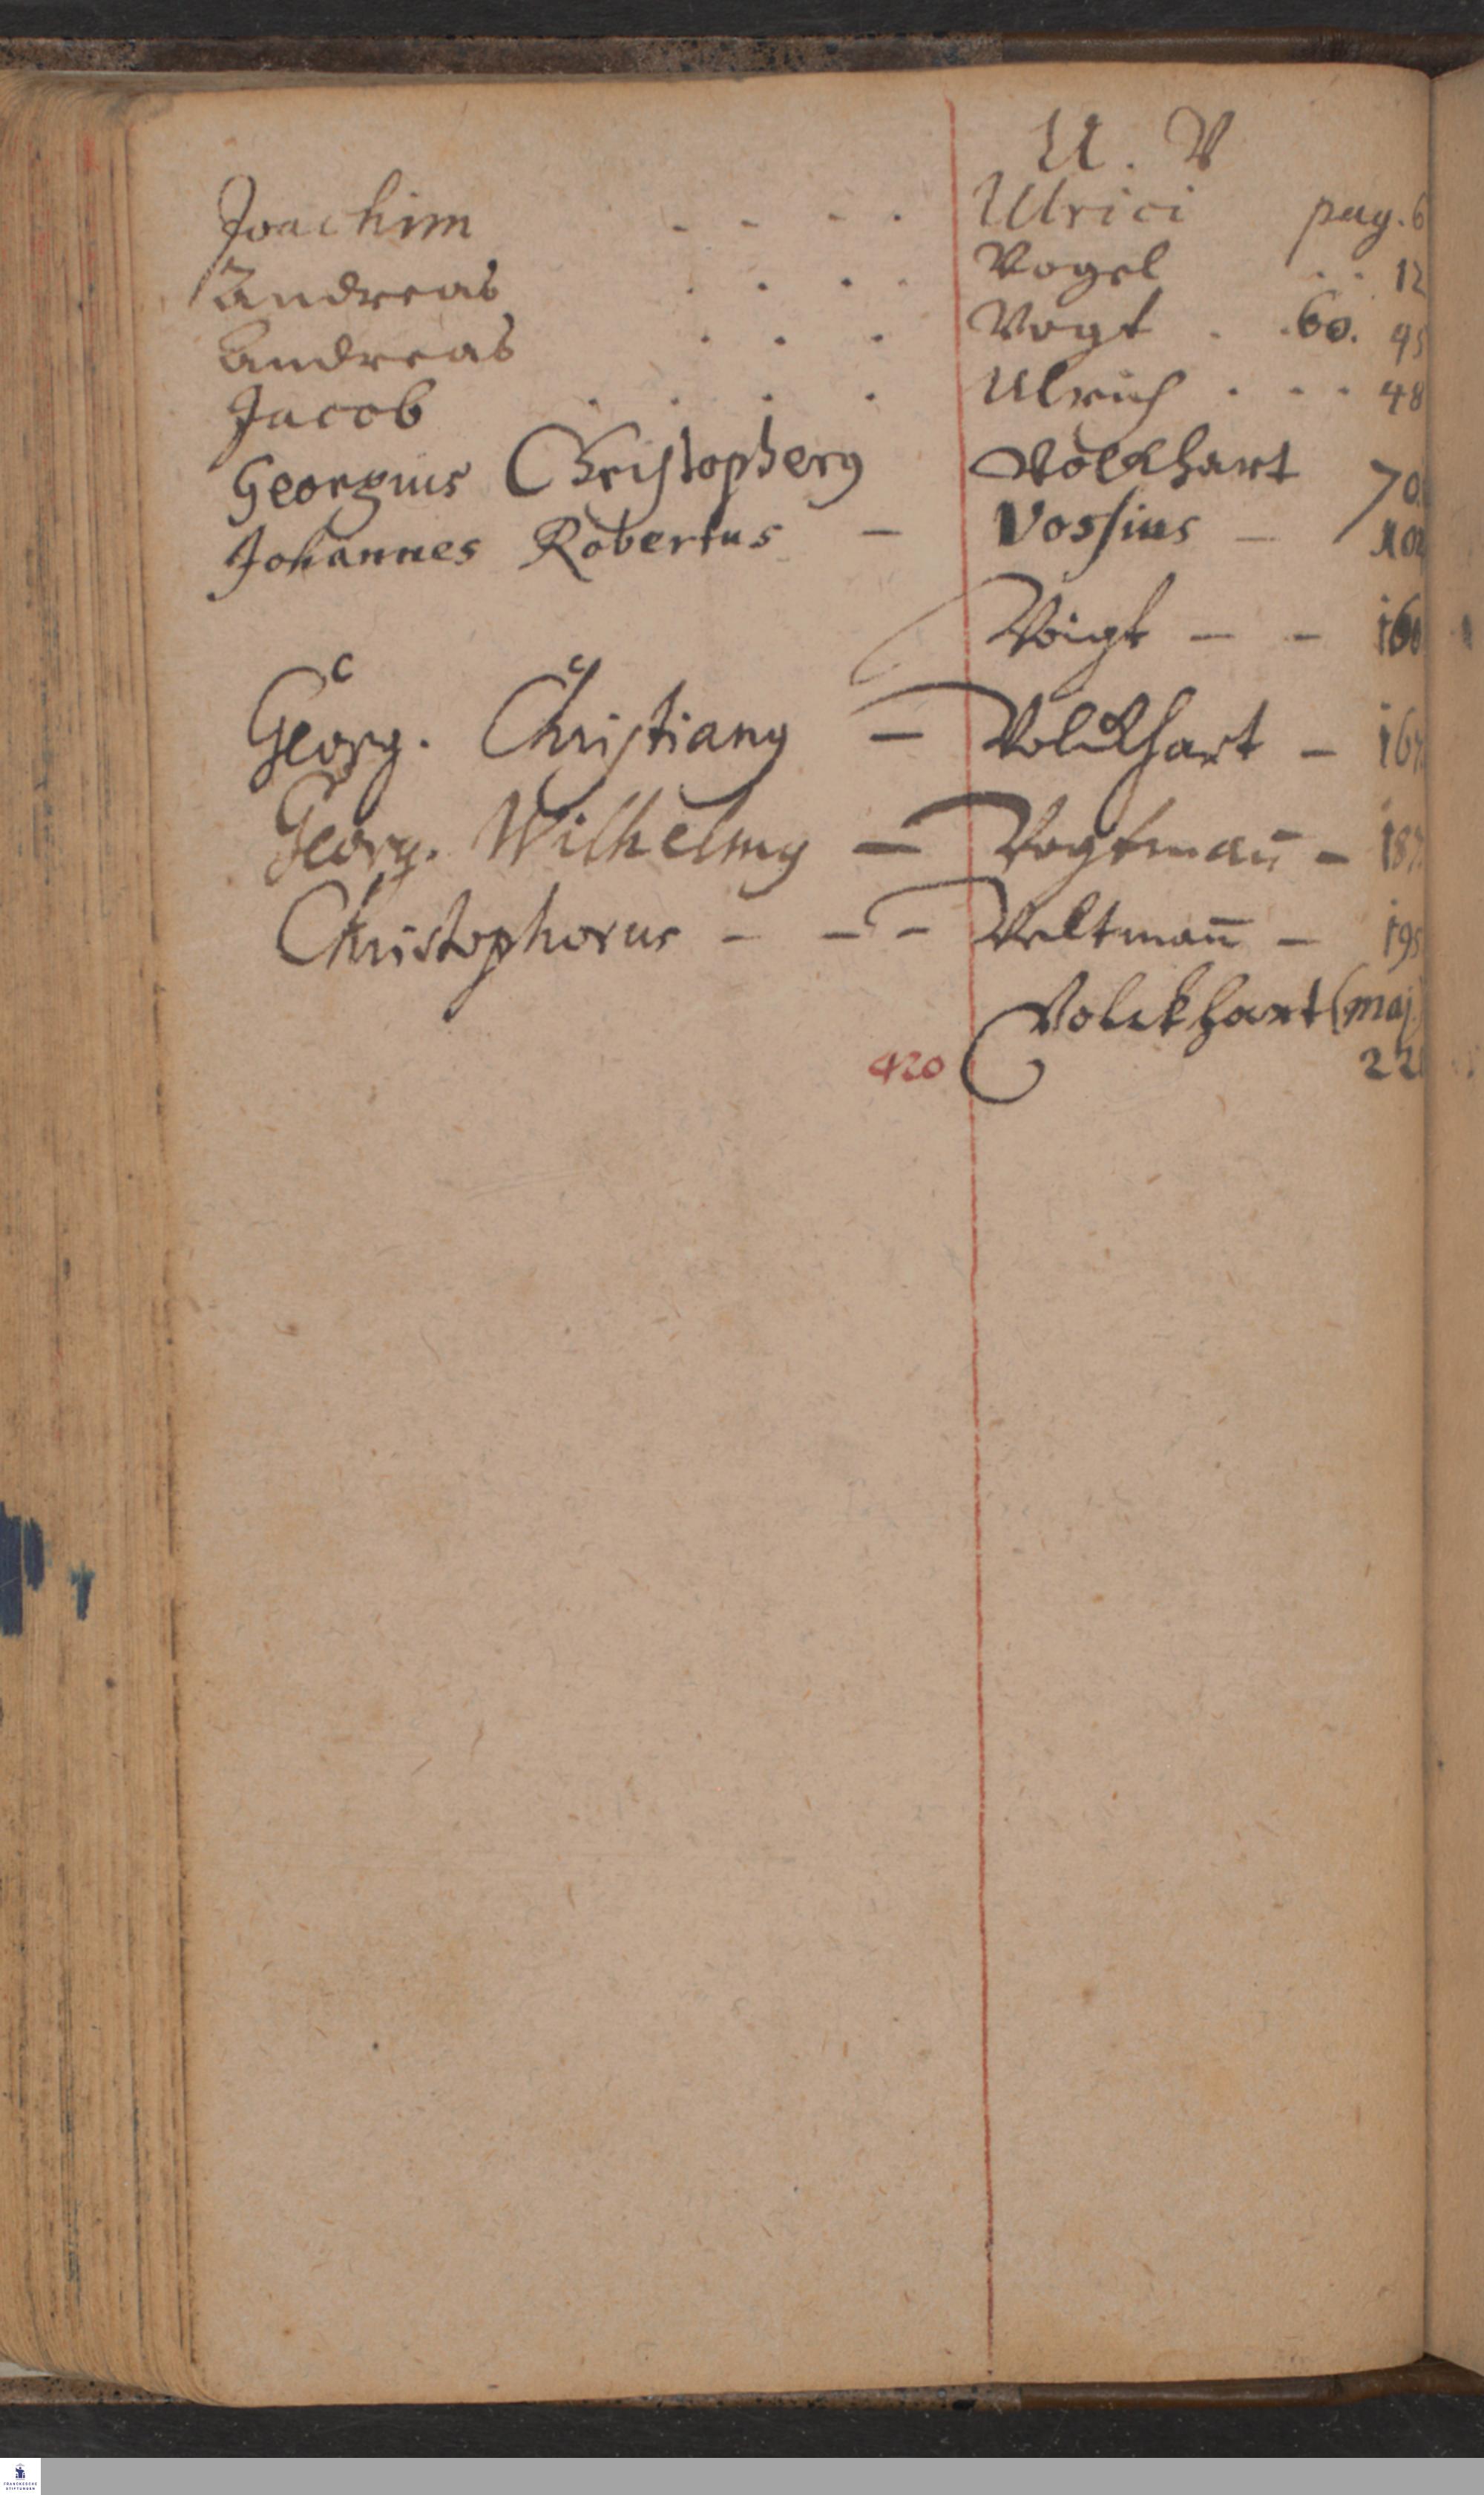 U. V
Joachim - - - . Ulrici pag. 6
Andreas . . . . Vogel . . 12
Andreas . . . Vogt . . 60. 95
Jacob . . . . Ulrich . - - 48
Georgius Christopherg Volckhart 70.
Johannes Robertus - Vossius - 102
Voigt - - 160
Georg. Christiang - Volckhart - 167.
Georg. Wilhelmg - Vogtman̄ - 187.
Christophorus - - - Veltman̄ - 195
Volckhart (maj.)
420 221
FRANCKESCHE
STIFTUNGEN